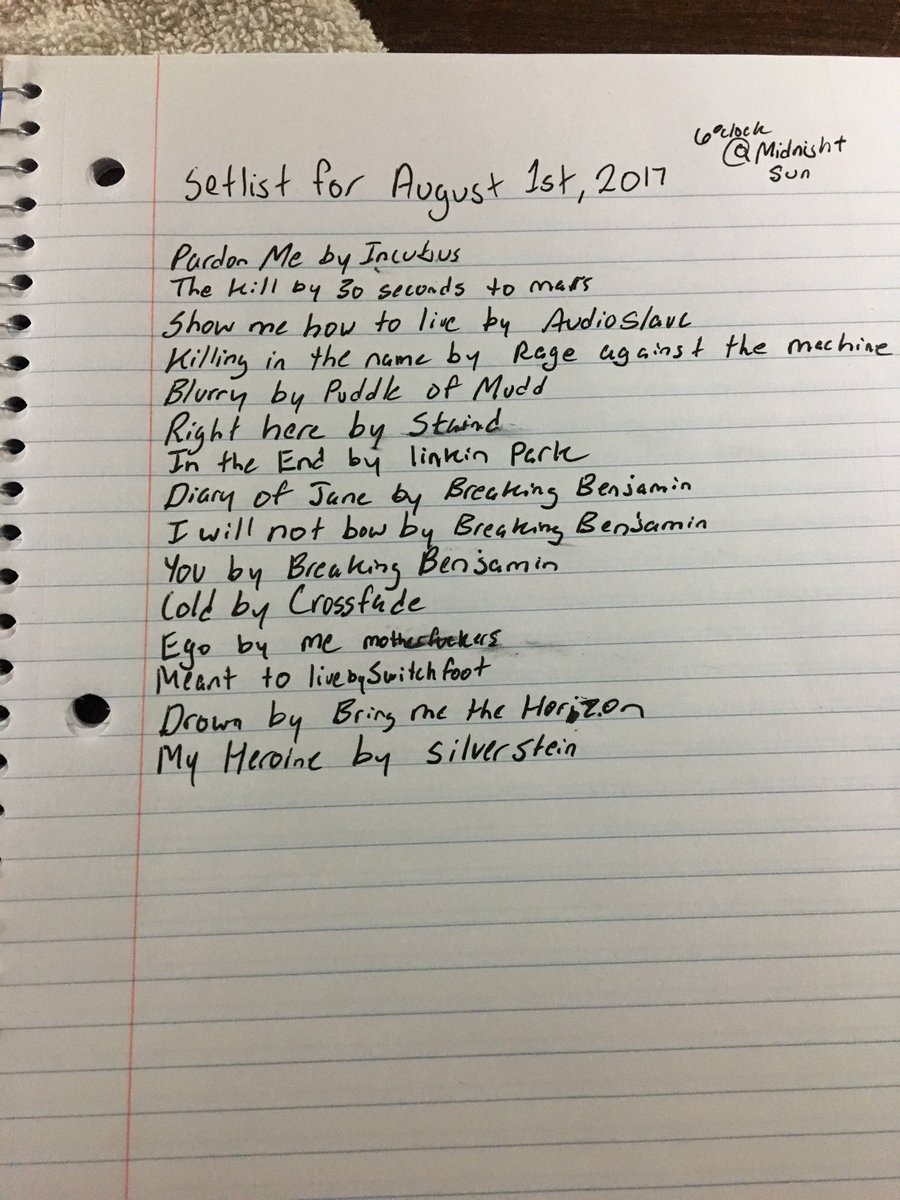 6 o'clock
@ Midnight
Sun
Setlist for August 1st, 2017
Pardon Me by Incubus
The Kill by 30 seconds to mars
Show me how to live by Audioslave
Killing in the name by Rage against the machine
Blurry by Puddle of Mudd
Right here by Staind
In the End by linkin Park
Diary of Jane by Breaking Benjamin
I will not bow by Breaking Benjamin
You by Breaking Benjamin
Cold by Crossfade
Ego by me motherfuckers
Meant to live by Switchfoot
Drown by Bring me the Horizon
My Heroine by Silverstein